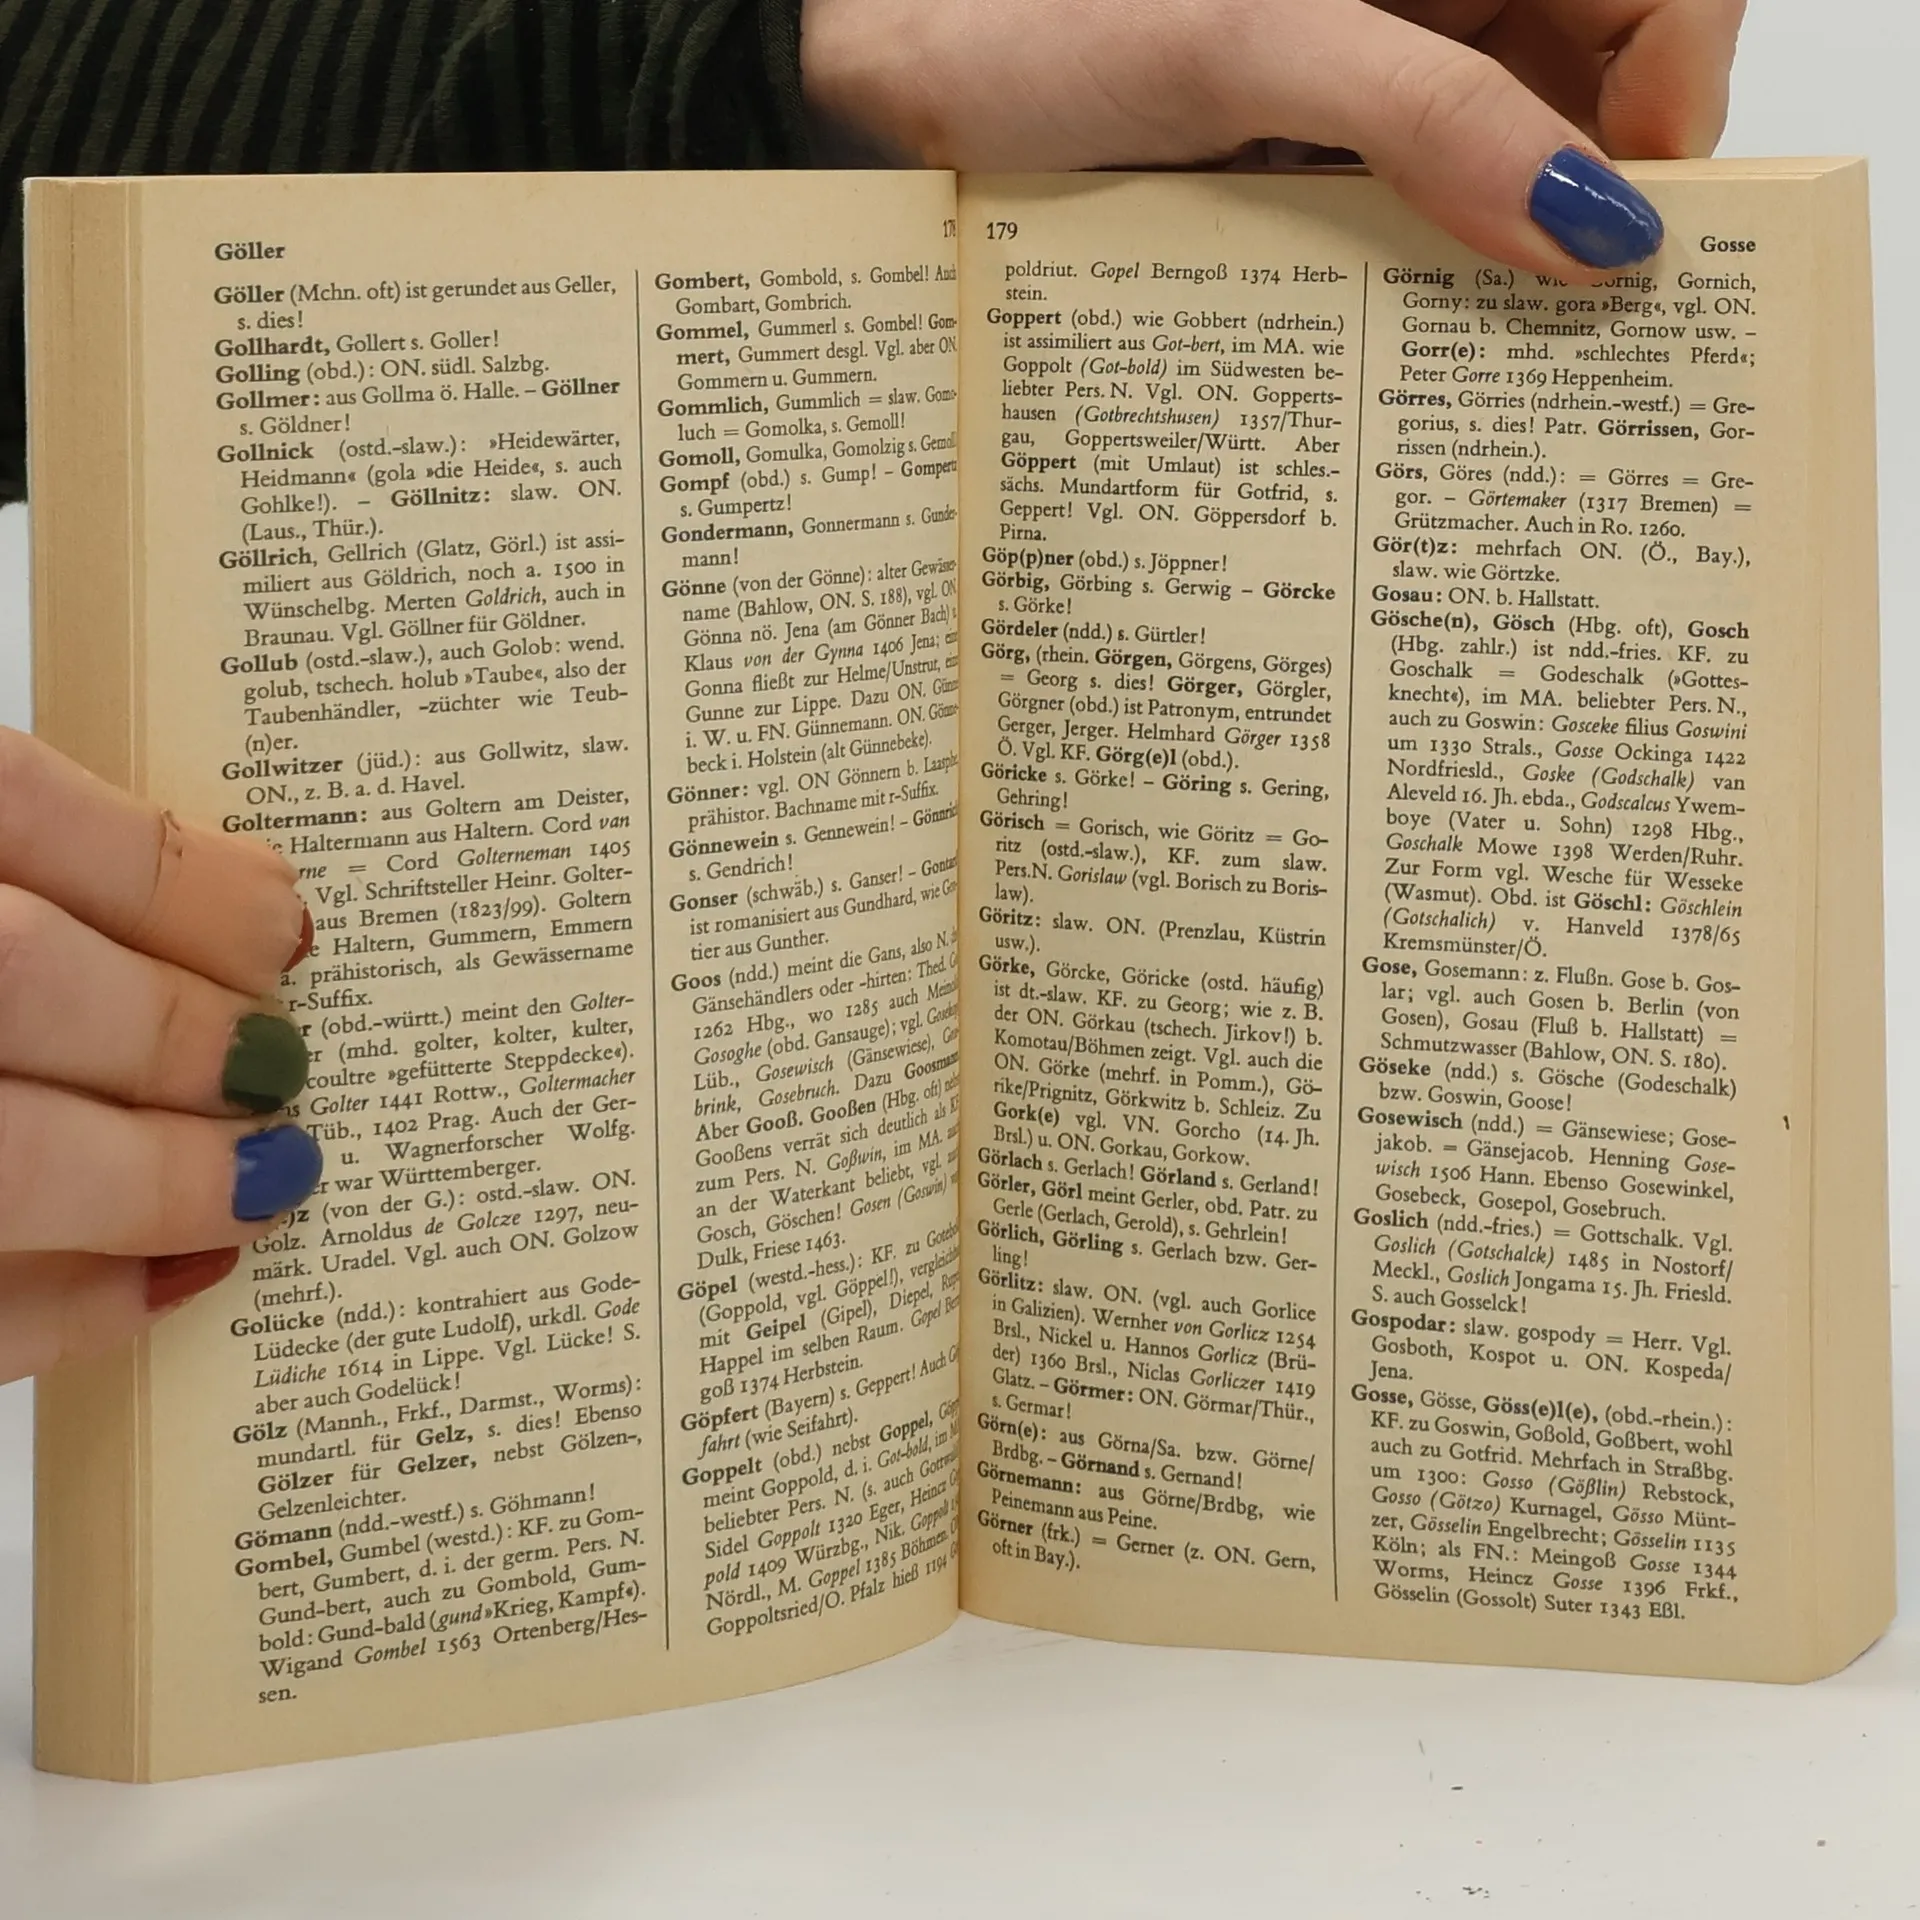 Göller
Göller (Mchn. oft) ist gerundet aus Geller,
s. dies!
Gollhardt, Gollert s. Goller!
Golling (obd.): ON. südl. Salzbg.
Gollmer: aus Gollma ö. Halle. – Göllner
s. Göldner!
Gollnick (ostd.-slaw.): »Heidewärter,
Heidmann« (gola »die Heide«, s. auch
Gohlke!). – Göllnitz: slaw. ON.
(Laus., Thür.).
Göllrich, Gellrich (Glatz, Görl.) ist assi-
miliert aus Göldrich, noch a. 1500 in
Wünschelbg. Merten Goldrich, auch in
Braunau. Vgl. Göllner für Göldner.
Gollub (ostd.-slaw.), auch Golob: wend.
golub, tschech. holub »Taube«, also der
Taubenhändler, -züchter wie Teub-
(n)er.
Gollwitzer (jüd.): aus Gollwitz, slaw.
ON., z. B. a. d. Havel.
Goltermann: aus Goltern am Deister,
Haltermann aus Haltern. Cord van
= Cord Golterneman 1405
Vgl. Schriftsteller Heinr. Golter-
aus Bremen (1823/99). Goltern
Haltern, Gummern, Emmern
a. prähistorisch, als Gewässername
r-Suffix.
(obd.-württ.) meint den Golter-
(mhd. golter, kolter, kulter,
coultre »gefütterte Steppdecke«).
Golter 1441 Rottw., Goltermacher
Tüb., 1402 Prag. Auch der Ger-
u. Wagnerforscher Wolfg.
war Württemberger.
(von der G.): ostd.-slaw. ON.
Golz. Arnoldus de Golcze 1297, neu-
märk. Uradel. Vgl. auch ON. Golzow
(mehrf.).
Golücke (ndd.): kontrahiert aus Gode-
Lüdecke (der gute Ludolf), urkdl. Gode
Lüdiche 1614 in Lippe. Vgl. Lücke! S.
aber auch Godelück!
Gölz (Mannh., Frkf., Darmst., Worms):
mundartl. für Gelz, s. dies! Ebenso
Gölzer für Gelzer, nebst Gölzen-,
Gelzenleichter.
Gömann (ndd.-westf.) s. Göhmann!
Gombel, Gumbel (westd.): KF. zu Gom-
bert, Gumbert, d. i. der germ. Pers. N.
Gund-bert, auch zu Gombold, Gum-
bold: Gund-bald (gund »Krieg, Kampf«).
Wigand Gombel 1563 Ortenberg/Hes-
sen.
Gombert, Gombold, s. Gombel! Auch
Gombart, Gombrich.
Gommel, Gummerl s. Gombel! Gom-
mert, Gummert desgl. Vgl. aber ON.
Gommern u. Gummern.
Gommlich, Gummlich = slaw. Gomo-
luch = Gomolka, s. Gemoll!
Gomoll, Gomulka, Gomolzig s. Gemoll
Gompf (obd.) s. Gump! – Gompertz
s. Gumpertz!
Gondermann, Gonnermann s. Gunder-
mann!
Gönne (von der Gönne): alter Gewässer-
name (Bahlow, ON. S. 188), vgl. ON
Gönna nö. Jena (am Gönner Bach)
Klaus von der Gynna 1406 Jena;
Gonna fließt zur Helme/Unstrut,
Gunne zur Lippe. Dazu ON.
i. W. u. FN. Günnemann. ON. Gönne-
beck i. Holstein (alt Günnebeke).
Gönner: vgl. ON Gönnern b. Laasphe
prähistor. Bachname mit r-Suffix.
Gönnewein s. Gennewein! – Gönnrich
s. Gendrich!
Gonser (schwäb.) s. Ganser! –
ist romanisiert aus Gundhard, wie
tier aus Gunther.
Goos (ndd.) meint die Gans, also N.
Gänsehändlers oder -hirten: Thed.
1262 Hbg., wo 1285 auch
Gosoghe (obd. Gansauge); vgl.
Lüb., Gosewisch (Gänsewiese),
brink, Gosebruch. Dazu Goosmann
Aber Gooß. Gooßen (Hbg. oft)
Gooßens verrät sich deutlich als
zum Pers. N. Goßwin, im MA.
an der Waterkant beliebt, vgl.
Gosch, Göschen! Gosen (Goswin)
Dulk, Friese 1463.
Göpel (westd.-hess.): KF. zu
(Goppold, vgl. Göppel!),
mit Geipel (Gipel), Diepel,
Happel im selben Raum. Gopel
goß 1374 Herbstein.
Göpfert (Bayern) s. Geppert! Auch
fahrt (wie Seifahrt).
Goppelt (obd.) nebst Goppel,
meint Goppold, d. i. Got-bold, im
beliebter Pers. N. (s. auch
Sidel Goppolt 1320 Eger, Heincz
pold 1409 Würzbg., Nik. Goppolt
Nördl., M. Goppel 1385 Böhmen.
Goppoltsried/O. Pfalz hieß 1194
179
Gosse
poldriut. Gopel Berngoß 1374 Herb-
stein.
Goppert (obd.) wie Gobbert (ndrhein.)
ist assimiliert aus Got-bert, im MA. wie
Goppolt (Got-bold) im Südwesten be-
liebter Pers. N. Vgl. ON. Gopperts-
hausen (Gotbrechtshusen) 1357/Thur-
gau, Goppertsweiler/Württ. Aber
Göppert (mit Umlaut) ist schles.-
sächs. Mundartform für Gotfrid, s.
Geppert! Vgl. ON. Göppersdorf b.
Pirna.
Göp(p)ner (obd.) s. Jöppner!
Görbig, Görbing s. Gerwig – Görcke
s. Görke!
Gördeler (ndd.) s. Gürtler!
Görg, (rhein. Görgen, Görgens, Görges)
= Georg s. dies! Görger, Görgler,
Görgner (obd.) ist Patronym, entrundet
Gerger, Jerger. Helmhard Görger 1358
Ö. Vgl. KF. Görg(e)l (obd.).
Göricke s. Görke! – Göring s. Gering,
Gehring!
Görisch = Gorisch, wie Göritz = Go-
ritz (ostd.-slaw.), KF. zum slaw.
Pers.N. Gorislaw (vgl. Borisch zu Boris-
law).
Göritz: slaw. ON. (Prenzlau, Küstrin
usw.).
Görke, Görcke, Göricke (ostd. häufig)
ist dt.-slaw. KF. zu Georg; wie z. B.
der ON. Görkau (tschech. Jirkov!) b.
Komotau/Böhmen zeigt. Vgl. auch die
ON. Görke (mehrf. in Pomm.), Gö-
rike/Prignitz, Görkwitz b. Schleiz. Zu
Gork(e) vgl. VN. Gorcho (14. Jh.
Brsl.) u. ON. Gorkau, Gorkow.
Görlach s. Gerlach! Görland s. Gerland!
Görler, Görl meint Gerler, obd. Patr. zu
Gerle (Gerlach, Gerold), s. Gehrlein!
Görlich, Görling s. Gerlach bzw. Ger-
ling!
Görlitz: slaw. ON. (vgl. auch Gorlice
in Galizien). Wernher von Gorlicz 1254
Brsl., Nickel u. Hannos Gorlicz (Brü-
der) 1360 Brsl., Niclas Gorliczer 1419
Glatz. – Görmer: ON. Görmar/Thür.,
s. Germar!
Görn(e): aus Görna/Sa. bzw. Görne/
Brdbg. – Görnand s. Gernand!
Görnemann: aus Görne/Brdbg, wie
Peinemann aus Peine.
Görner (frk.) = Gerner (z. ON. Gern,
oft in Bay.).
Görnig (Sa.) wie Gornig, Gornich,
Gorny: zu slaw. gora »Berg«, vgl. ON.
Gornau b. Chemnitz, Gornow usw. –
Gorr(e): mhd. »schlechtes Pferd«;
Peter Gorre 1369 Heppenheim.
Görres, Görries (ndrhein.-westf.) = Gre-
gorius, s. dies! Patr. Görrissen, Gor-
rissen (ndrhein.).
Görs, Göres (ndd.): = Görres = Gre-
gor. – Görtemaker (1317 Bremen) =
Grützmacher. Auch in Ro. 1260.
Gör(t)z: mehrfach ON. (Ö., Bay.),
slaw. wie Görtzke.
Gosau: ON. b. Hallstatt.
Gösche(n), Gösch (Hbg. oft), Gosch
(Hbg. zahlr.) ist ndd.-fries. KF. zu
Goschalk = Godeschalk (»Gottes-
knecht«), im MA. beliebter Pers. N.,
auch zu Goswin: Gosceke filius Goswini
um 1330 Strals., Gosse Ockinga 1422
Nordfriesld., Goske (Godschalk) van
Aleveld 16. Jh. ebda., Godscalcus Ywem-
boye (Vater u. Sohn) 1298 Hbg.,
Goschalk Mowe 1398 Werden/Ruhr.
Zur Form vgl. Wesche für Wesseke
(Wasmut). Obd. ist Göschl: Göschlein
(Gotschalich) v. Hanveld 1378/65
Kremsmünster/Ö.
Gose, Gosemann: z. Flußn. Gose b. Gos-
lar; vgl. auch Gosen b. Berlin (von
Gosen), Gosau (Fluß b. Hallstatt) =
Schmutzwasser (Bahlow, ON. S. 180).
Göseke (ndd.) s. Gösche (Godeschalk)
bzw. Goswin, Goose!
Gosewisch (ndd.) = Gänsewiese; Gose-
jakob. = Gänsejacob. Henning Gose-
wisch 1506 Hann. Ebenso Gosewinkel,
Gosebeck, Gosepol, Gosebruch.
Goslich (ndd.-fries.) = Gottschalk. Vgl.
Goslich (Gotschalck) 1485 in Nostorf/
Meckl., Goslich Jongama 15. Jh. Friesld.
S. auch Gosselck!
Gospodar: slaw. gospody = Herr. Vgl.
Gosboth, Kospot u. ON. Kospeda/
Jena.
Gosse, Gösse, Göss(e)l(e), (obd.-rhein.):
KF. zu Goswin, Goßold, Goßbert, wohl
auch zu Gotfrid. Mehrfach in Straßbg.
um 1300: Gosso (Gößlin) Rebstock,
Gosso (Götzo) Kurnagel, Gösso Münt-
zer, Gösselin Engelbrecht; Gösselin 1135
Köln; als FN.: Meingoß Gosse 1344
Worms, Heincz Gosse 1396 Frkf.,
Gösselin (Gossolt) Suter 1343 Eßl.